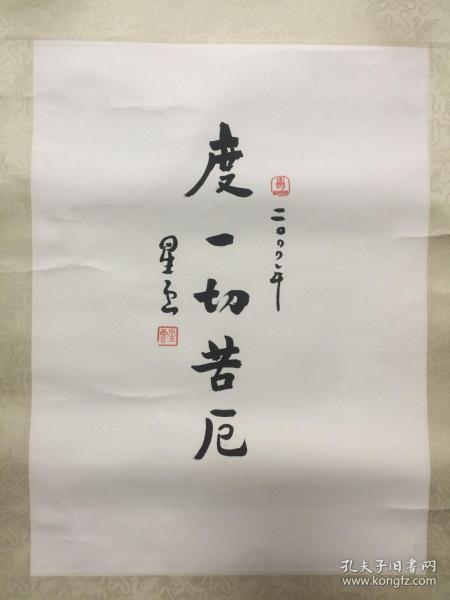 二〇〇〇年
度一切苦厄
星云
孔夫子旧书网
www.kongfz.com